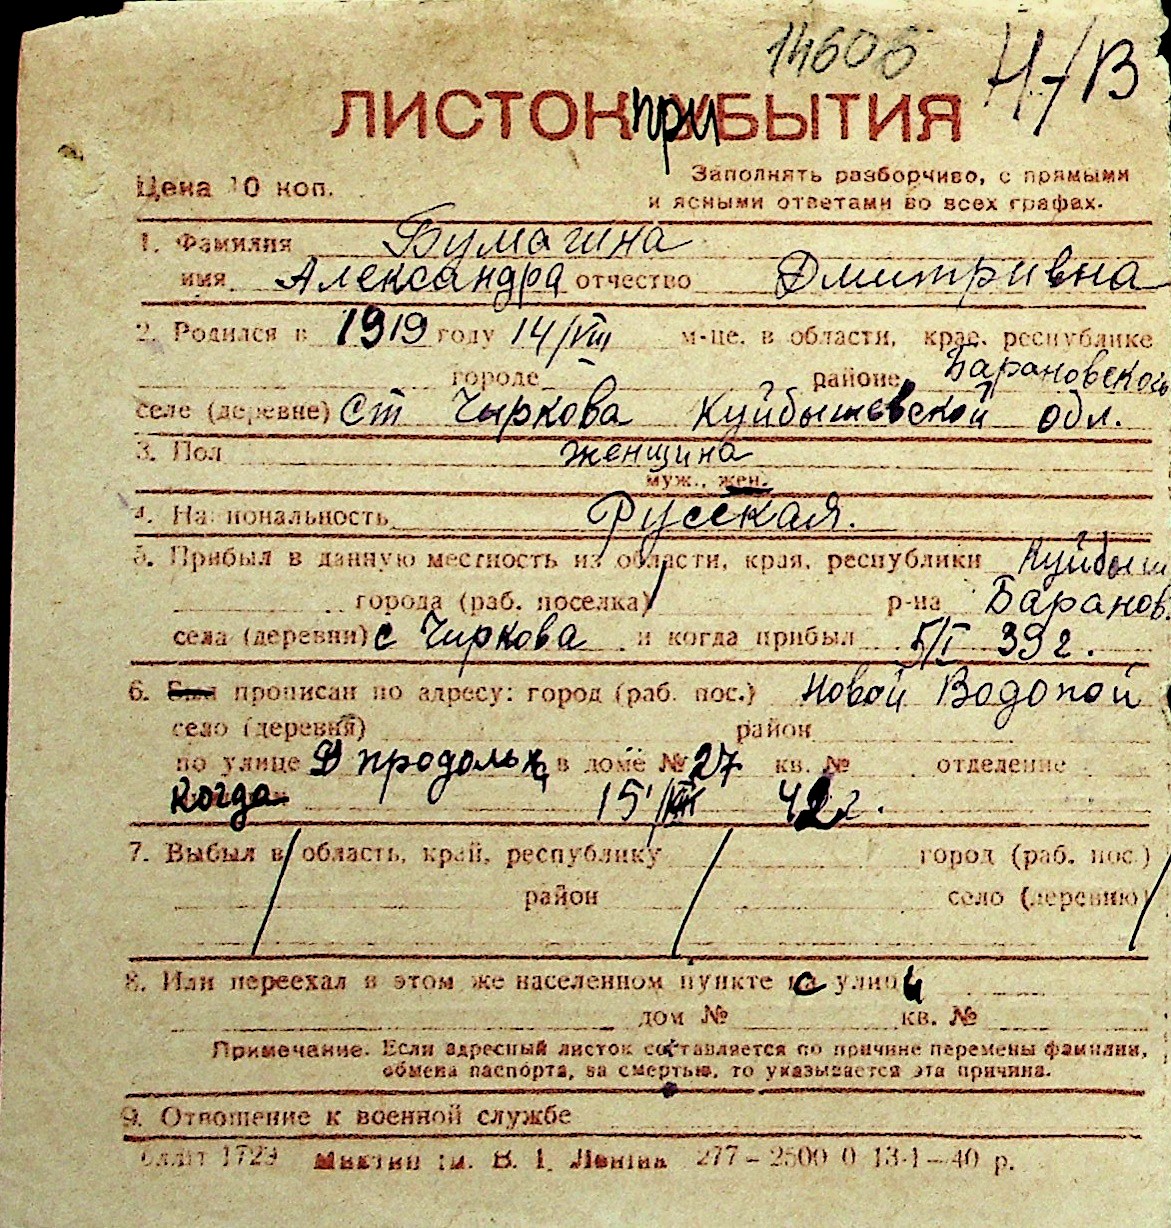 14606 Н/В
ЛИСТОК ПРИБЫТИЯ
Цена 10 коп.
Заполнять разборчиво, с прямыми
и ясными ответами во всех графах.
1. Фамилия Бумагина
имя Александра отчество Дмитривна
2. Родился в 1919 году 14/VIII м-це. в области, крае. республике
городе районе Барановского
селе (деревне) Ст Чыркова Куйбышевской обл.
3. Пол женщина
муж., жен.
4. Национальность Русская.
5. Прибыл в данную местность из области, края, республики Куйбыш
города (раб. поселка) р-на Баранов.
села (деревни) с Чиркова и когда прибыл 5/I 39 г.
6. Был прописан по адресу: город (раб. пос.) Новой Водопой
село (деревня) район
по улице продольн в доме № 27 кв. № отделение
когда 15/VIII 42 г.
7. Выбыл в область, край, республику город (раб. пос.)
район село (деревню)
8. Или переехал в этом же населенном пункте с улицы
дом № кв. №
Примечание. Если адресный листок составляется по причине перемены фамилии,
обмена паспорта, за смертью, то указывается эта причина.
9. Отношение к военной службе
1729 ім. В. І. Леніна 277 – 2500 0 13-1-40 р.